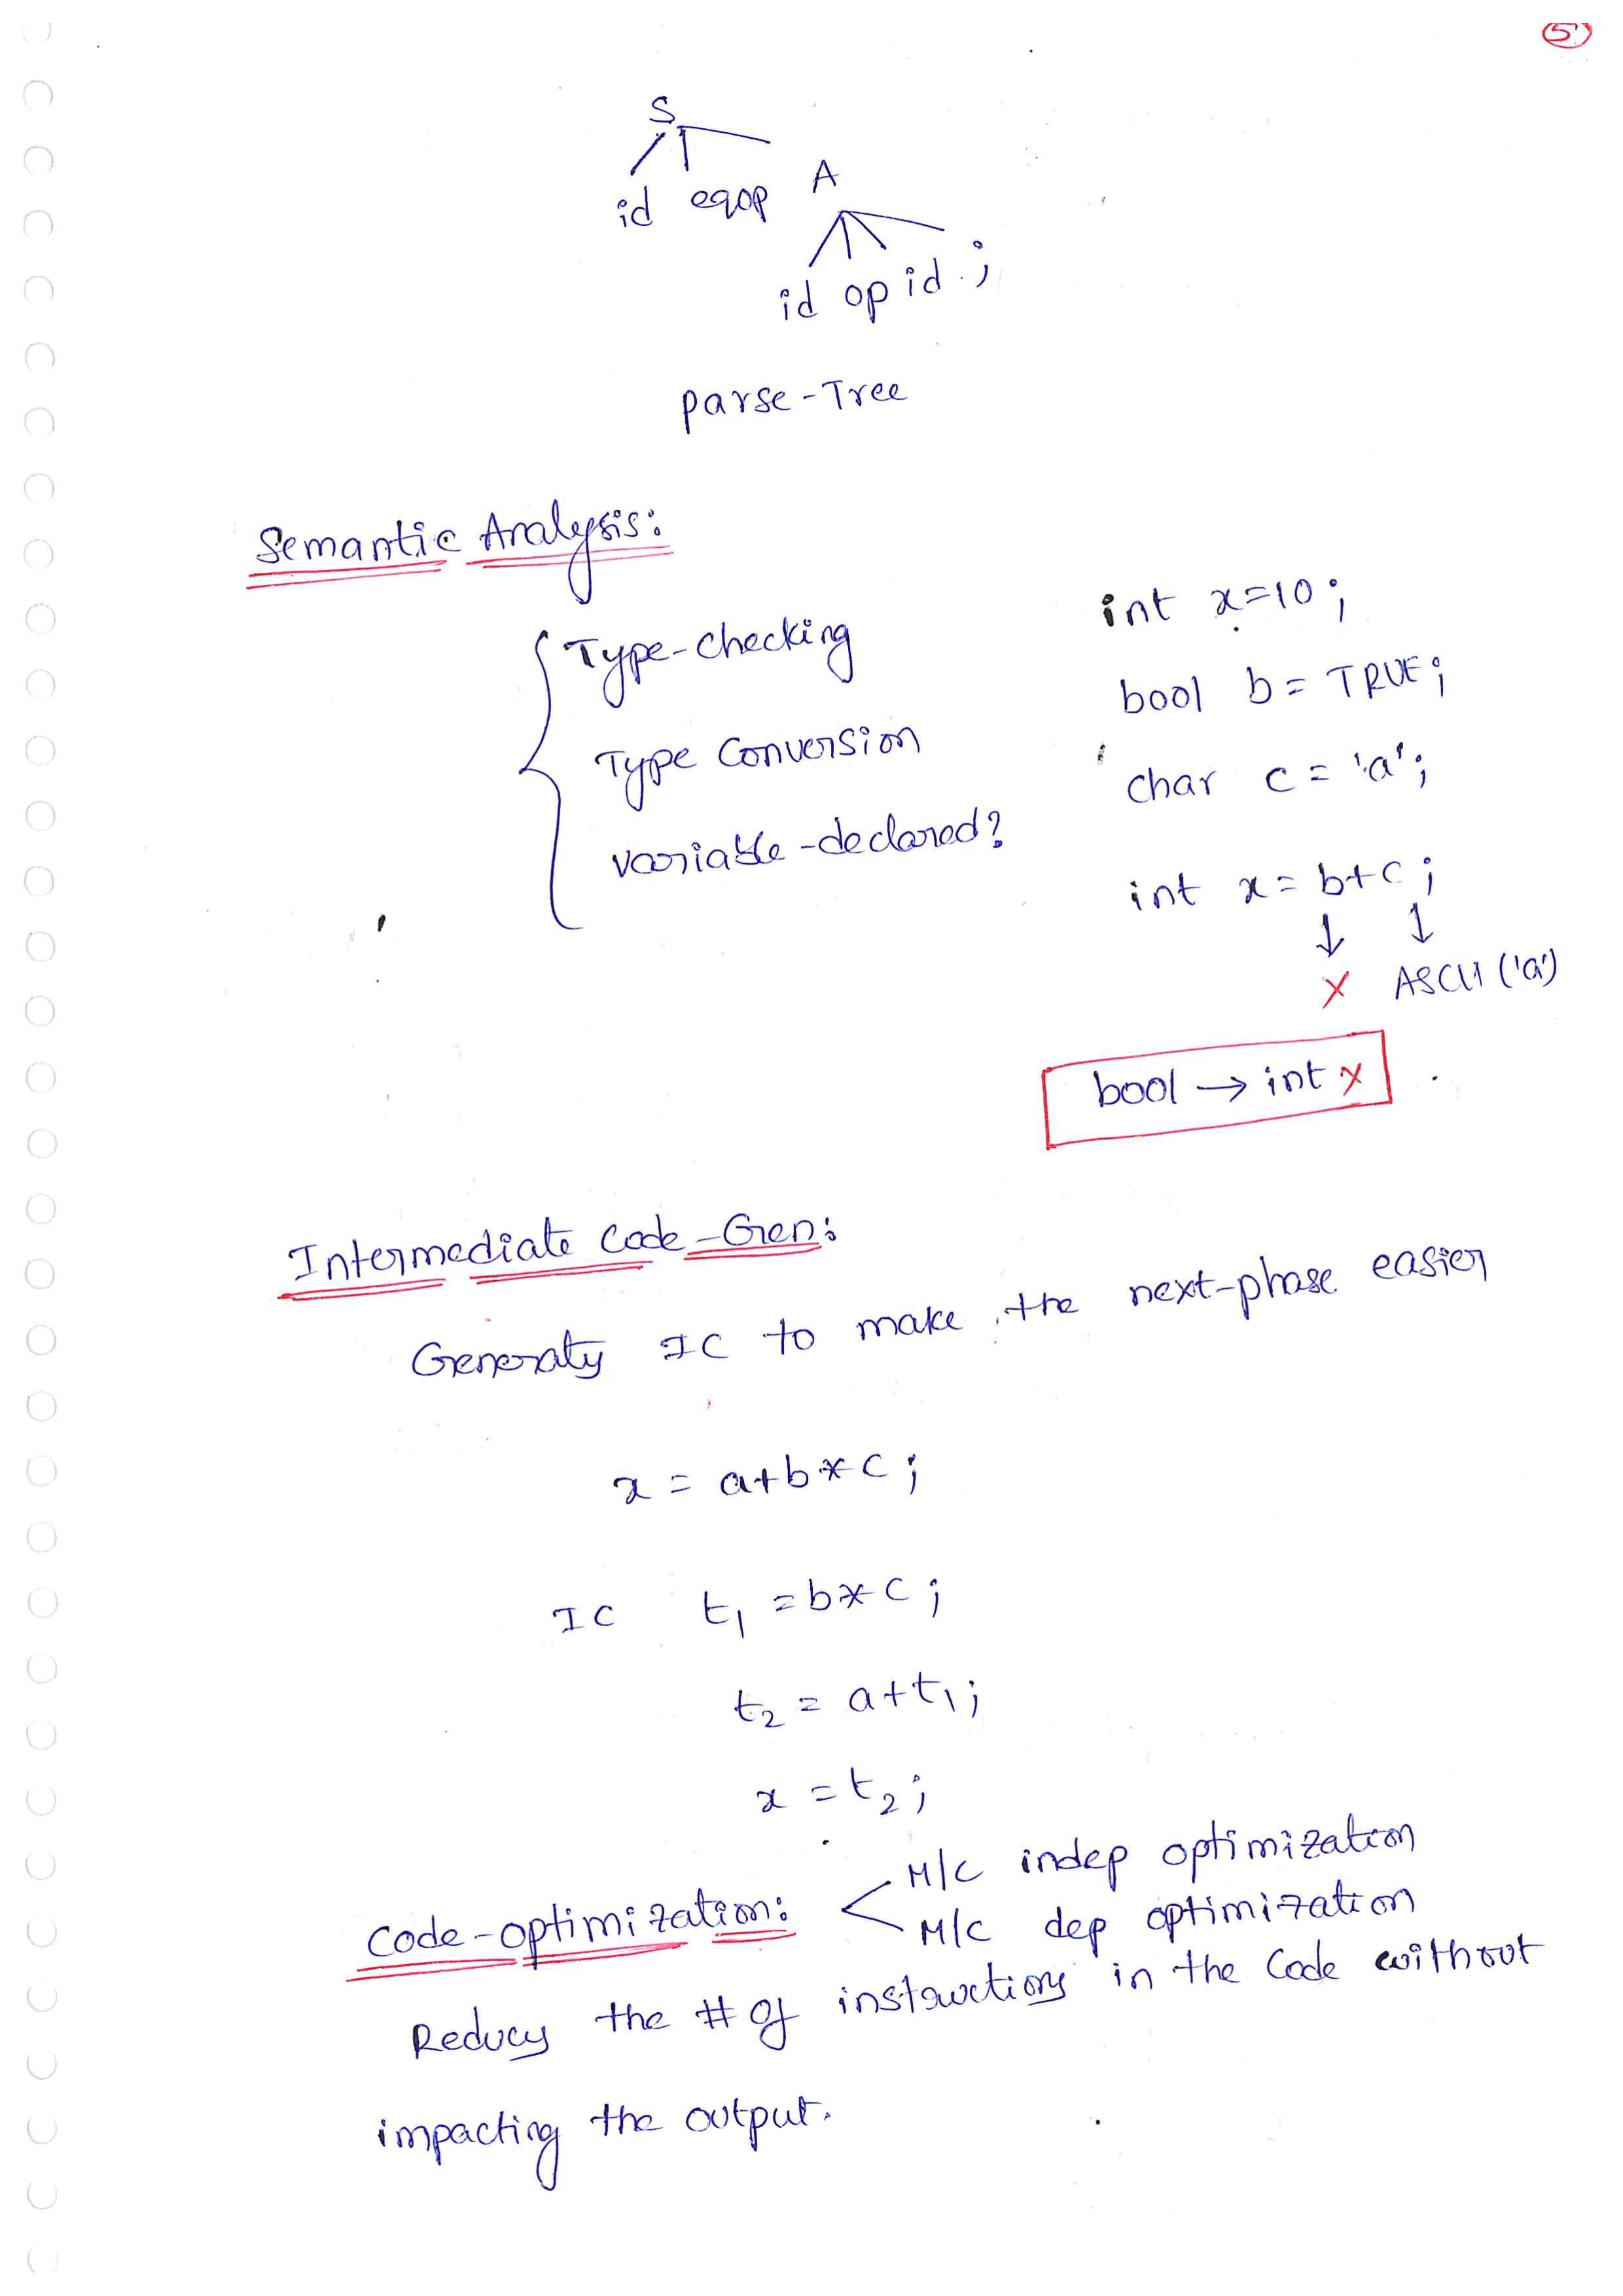 5
S
id eqop A
id op id ;
parse-Tree
Semantic Analysis:
Type-checking
Type Conversion
variable-declared?
int x=10;
bool b = TRUE;
char c = 'a';
int x = b+c;
↓ ↓
X ASCII ('a')
bool → int X
Intermediate Code-Gen:
Generates IC to make the next-phase easier
x = a+b*c;
IC t1 = b*c;
t2 = a+t1;
x = t2;
Code-optimization:
M/C indep optimization
M/C dep optimization
Reduces the # of instructions in the Code without
impacting the output.